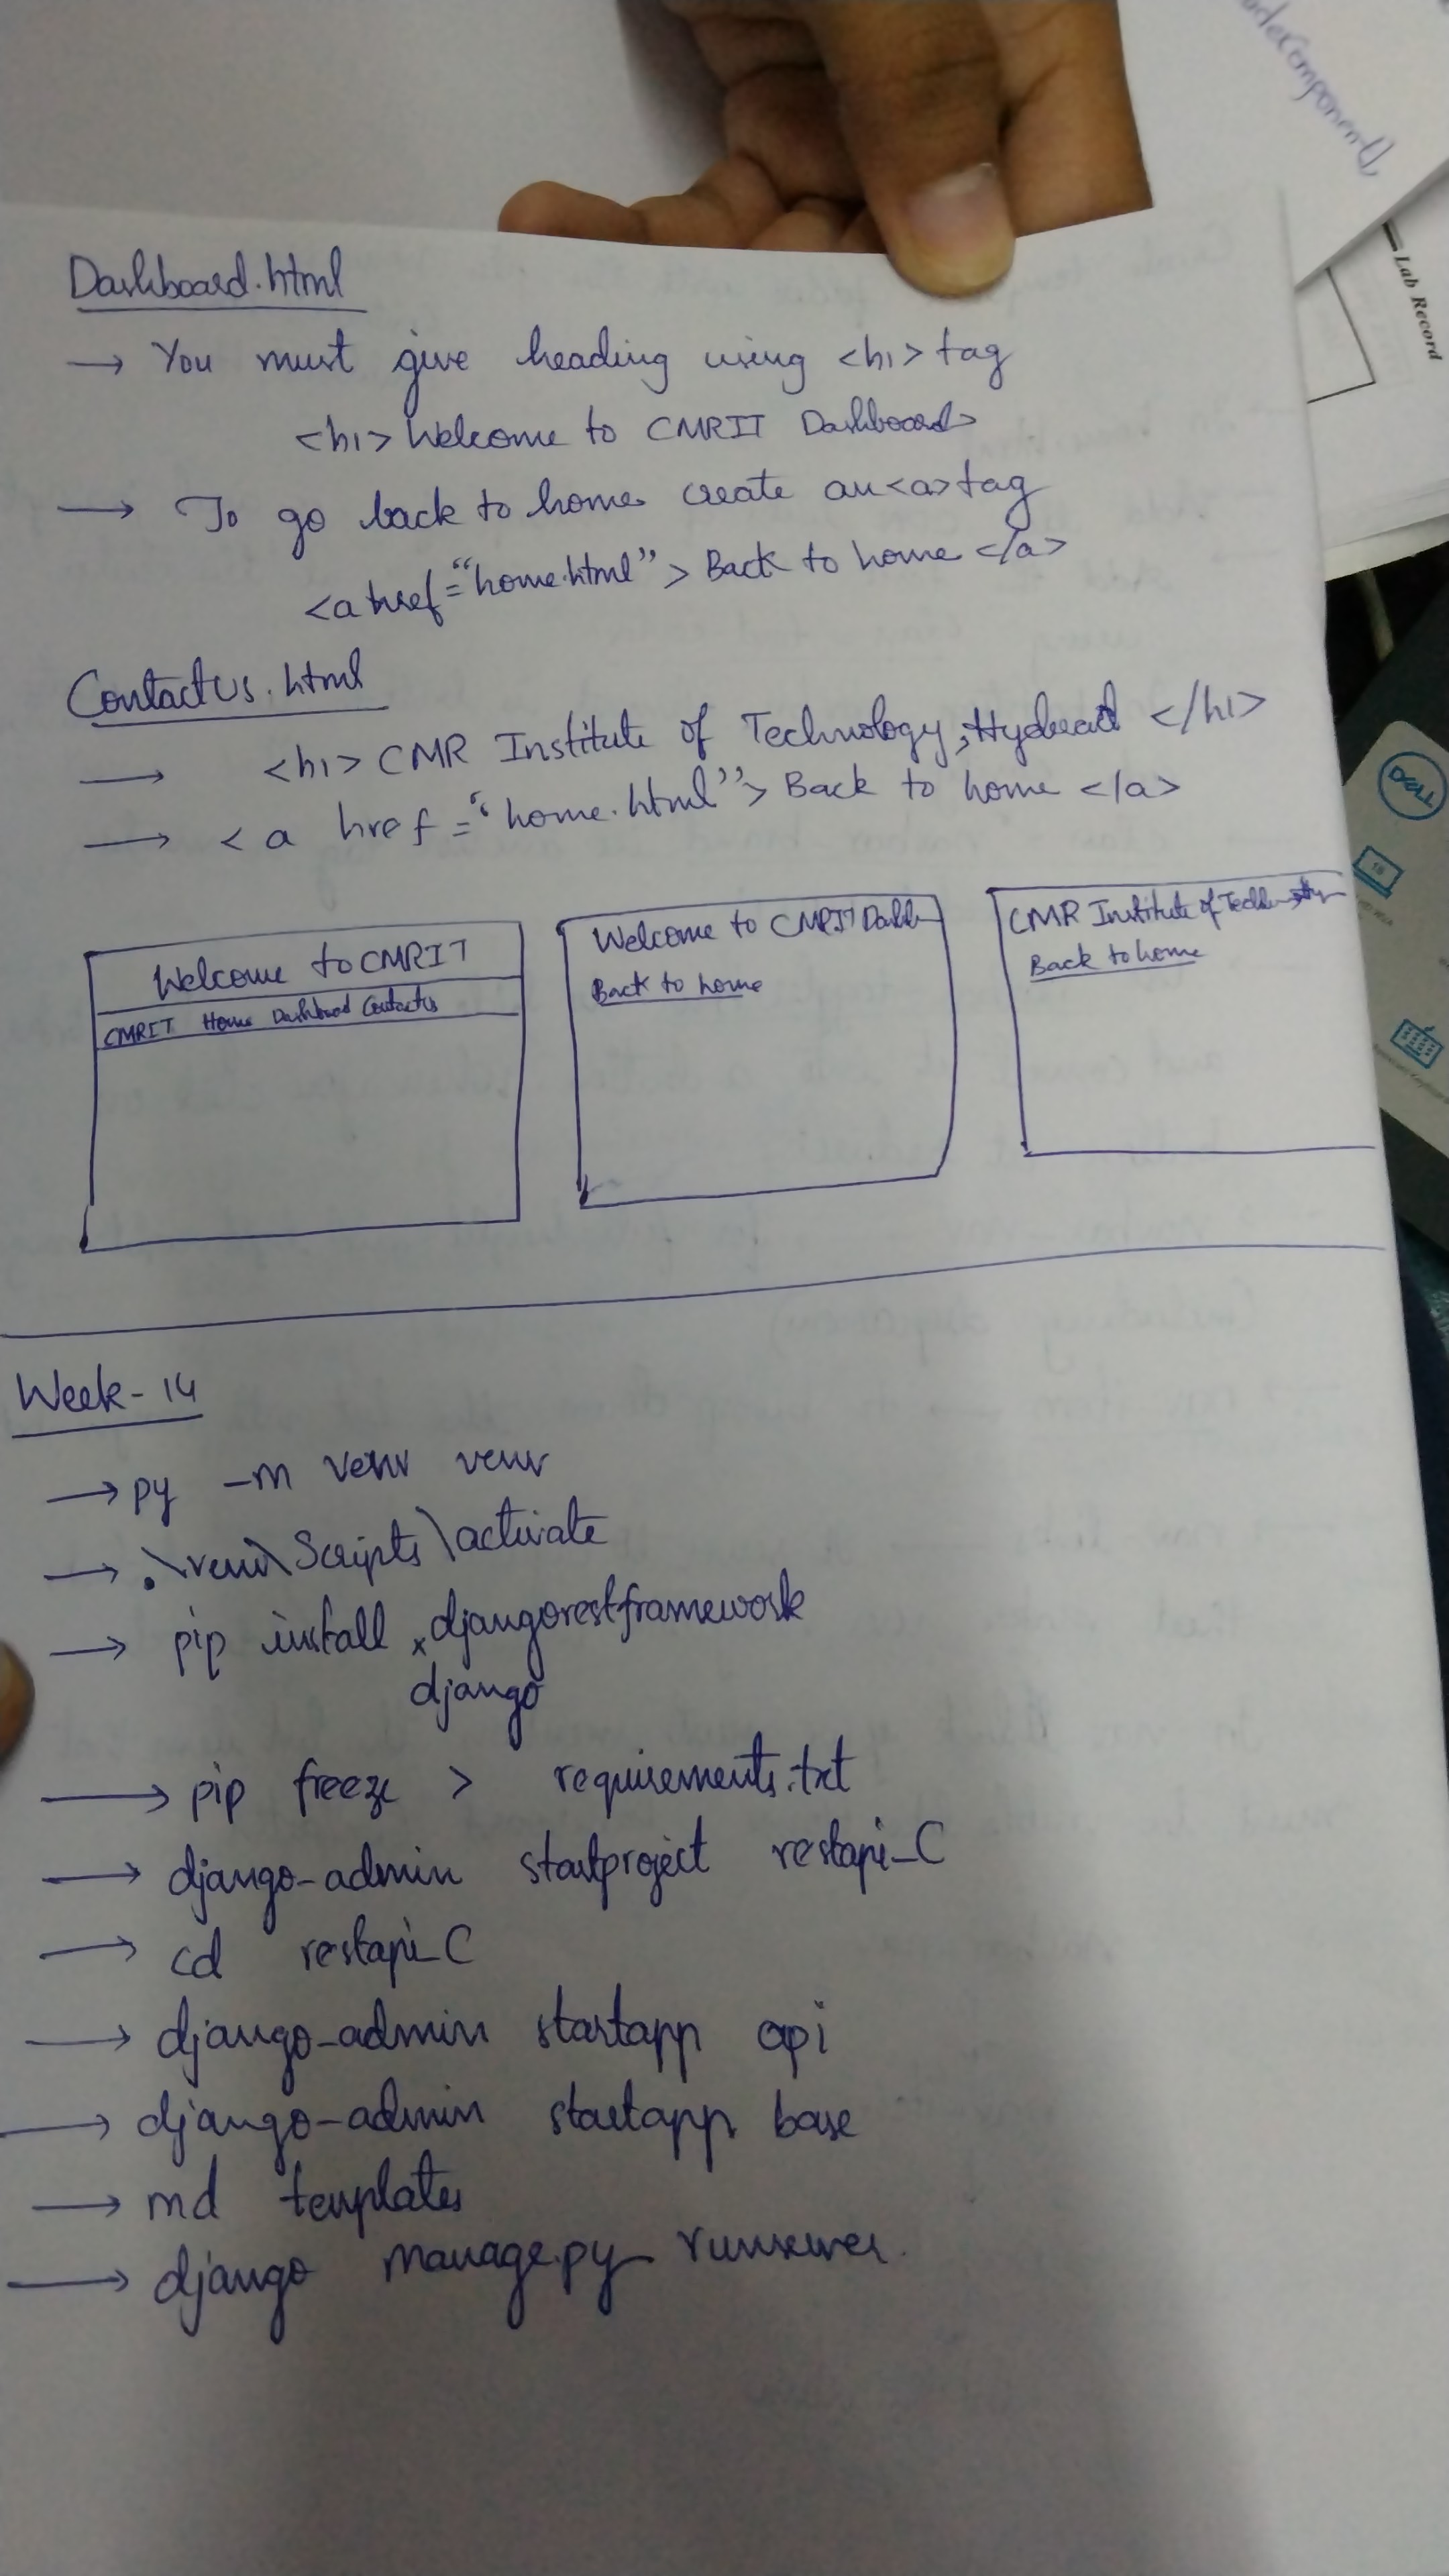 adeComponent(),
Lab Record
Dashboard.html
→ You must give heading using <h1> tag
<h1> Welcome to CMRIT Dashboard>
→ To go back to home create an <a> tag
<a href="home.html"> Back to home </a>
ContactUs.html
→ <h1> CMR Institute of Technology, </h1>
→ <a href="home.html"> Back to home </a>
DELL
Welcome to CMRIT
CMRIT Home Dashboard Contactus
Welcome to CMRIT Dashb
Back to home
CMR Institute of
Back to home
Week-14
→ py -m venv venv
→ .\venv\Scripts\activate
→ pip install x djangorestframework
django
→ pip freeze > requirements.txt
→ django-admin startproject restapi_C
→ cd restapi_C
→ django-admin startapp api
→ django-admin startapp base
→ md templates
→ django manage.py runserver.